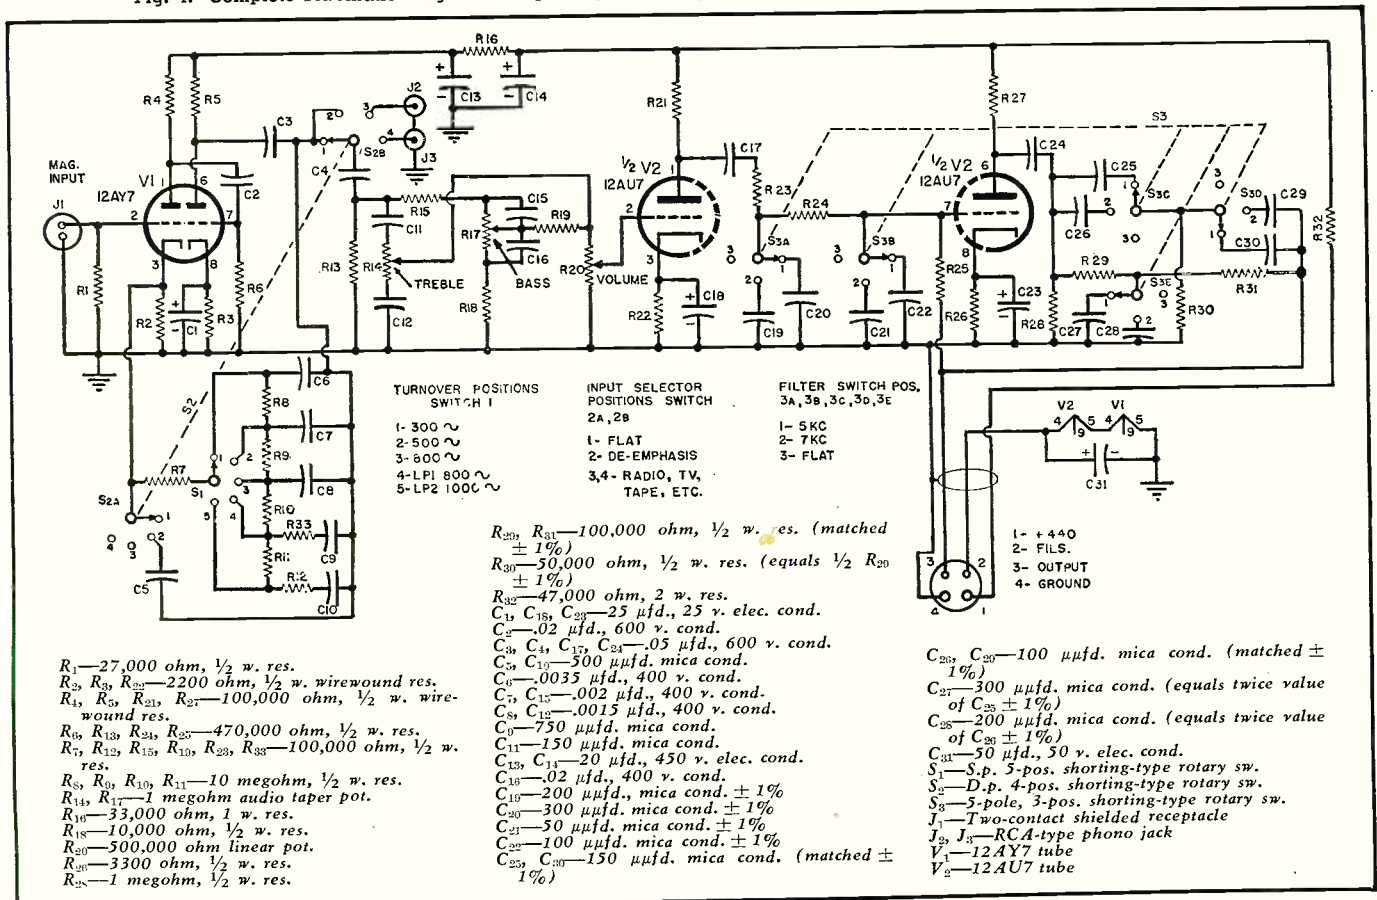 R16
R4
R5
C3
C13
C14
J2
J3
S2B
C4
MAG.
INPUT
J1
V1
12AY7
C2
R1
R2
C1
R3
R6
R13
R14
C11
C12
TREBLE
R15
R17
BASS
R18
C15
C16
R19
R20
VOLUME
R21
1/2 V2
12AU7
R22
C18
C17
R23
R24
S3A
S3B
C19
C20
C21
C22
R25
R26
R27
1/2 V2
12AU7
C23
C24
C25
C26
S3
S3C
S3D
S3E
R28
R29
C27
C28
R30
R31
C29
C30
R32
S2
R7
S1
S2A
C5
C6
R8
C7
R9
C8
R10
R33
C9
R11
R12
C10
TURNOVER POSITIONS
SWITCH 1
1- 300 ~
2- 500 ~
3- 800 ~
4- LP1 800 ~
5- LP2 1000 ~
INPUT SELECTOR
POSITIONS SWITCH
2A,2B
1- FLAT
2- DE-EMPHASIS
3,4- RADIO, TV,
TAPE, ETC.
FILTER SWITCH POS.
3A,3B,3C,3D,3E
1- 5KC
2- 7KC
3- FLAT
V2
V1
4 9 5 4 9 5
C31
1- +440
2- FILS.
3- OUTPUT
4- GROUND
R₁—27,000 ohm, ½ w. res.
R₂, R₃, R₂₂—2200 ohm, ½ w. wirewound res.
R₄, R₅, R₂₁, R₂₇—100,000 ohm, ½ w. wire-
wound res.
R₆, R₁₃, R₂₄, R₂₅—470,000 ohm, ½ w. res.
R₇, R₁₂, R₁₅, R₁₉, R₂₃, R₃₃—100,000 ohm, ½ w.
res.
R₈, R₉, R₁₀, R₁₁—10 megohm, ½ w. res.
R₁₄, R₁₇—1 megohm audio taper pot.
R₁₆—33,000 ohm, 1 w. res.
R₁₈—10,000 ohm, ½ w. res.
R₂₀—500,000 ohm linear pot.
R₂₆—3300 ohm, ½ w. res.
R₂₈—1 megohm, ½ w. res.
R₂₉, R₃₁—100,000 ohm, ½ w. res. (matched
± 1%)
R₃₀—50,000 ohm, ½ w. res. (equals ½ R₂₉
± 1%)
R₃₂—47,000 ohm, 2 w. res.
C₁, C₁₈, C₂₃—25 μfd., 25 v. elec. cond.
C₂—.02 μfd., 600 v. cond.
C₃, C₄, C₁₇, C₂₄—.05 μfd., 600 v. cond.
C₅, C₁₀—500 μμfd. mica cond.
C₆—.0035 μfd., 400 v. cond.
C₇, C₁₅—.002 μfd., 400 v. cond.
C₈, C₁₂—.0015 μfd., 400 v. cond.
C₉—750 μμfd. mica cond.
C₁₁—150 μμfd. mica cond.
C₁₃, C₁₄—20 μfd., 450 v. elec. cond.
C₁₆—.02 μfd., 400 v. cond.
C₁₉—200 μμfd., mica cond. ± 1%
C₂₀—300 μμfd. mica cond. ± 1%
C₂₁—50 μμfd. mica cond. ± 1%
C₂₂—100 μμfd. mica cond. ± 1%
C₂₅, C₃₀—150 μμfd. mica cond. (matched ±
1%)
C₂₆, C₂₉—100 μμfd. mica cond. (matched ±
1%)
C₂₇—300 μμfd. mica cond. (equals twice value
of C₂₅ ± 1%)
C₂₈—200 μμfd. mica cond. (equals twice value
of C₂₆ ± 1%)
C₃₁—50 μfd., 50 v. elec. cond.
S₁—S.p. 5-pos. shorting-type rotary sw.
S₂—D.p. 4-pos. shorting-type rotary sw.
S₃—5-pole, 3-pos. shorting-type rotary sw.
J₁—Two-contact shielded receptacle
J₂, J₃—RCA-type phono jack
V₁—12AY7 tube
V₂—12AU7 tube